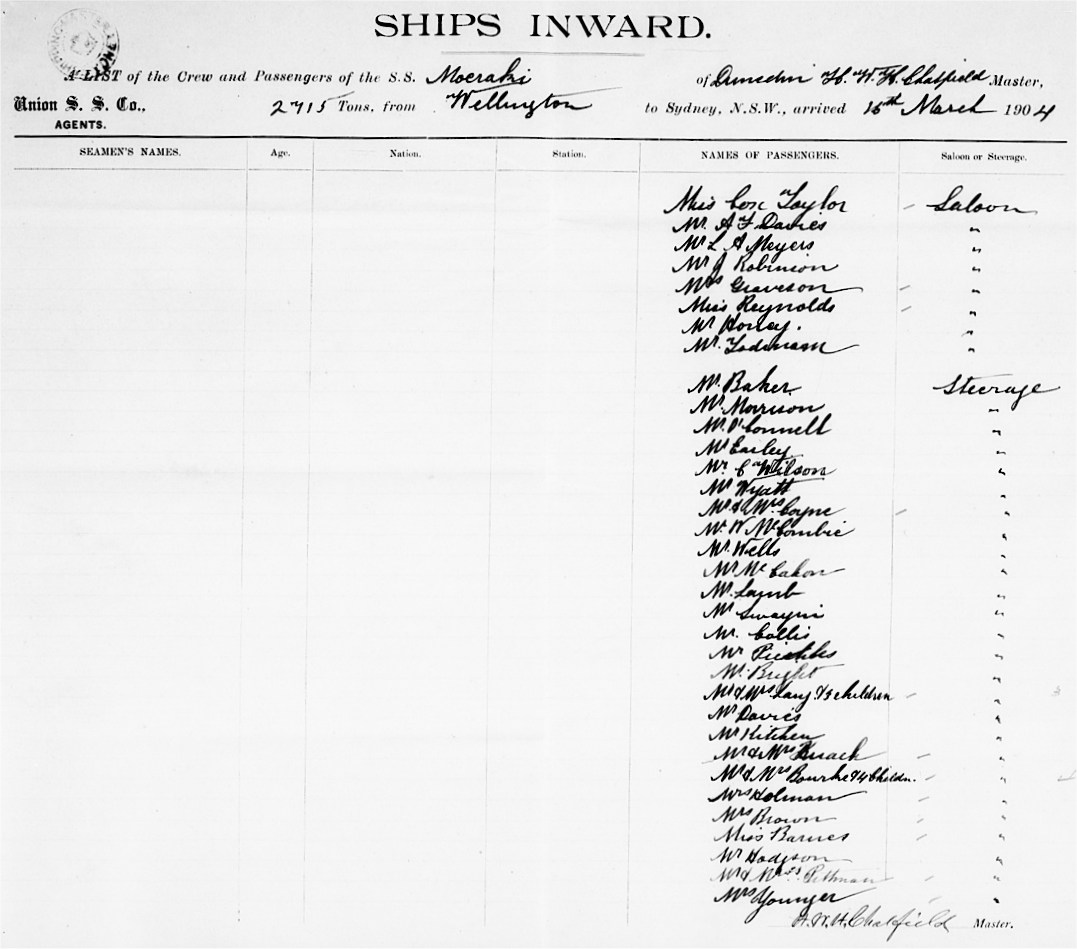 SHIPS INWARD.
A LIST of the Crew and Passengers of the S.S. Moeraki of Dunedin H. W. H. Chatfield Master,
Union S. S. Co., 2715 Tons, from Wellington to Sydney, N.S.W., arrived 16th March 1904
AGENTS.
SEAMEN'S NAMES. Age. Nation. Station. NAMES OF PASSENGERS. Saloon or Steerage.
Miss Cox Taylor Saloon
Mr. A F Davies "
Mr L A Meyers "
Mr J Robinson "
Mrs Graveson "
Miss Reynolds "
Mr "
Mr. "
Mr. Baker Steerage
Mr Morrison "
Mr. O'Connell "
Mr Earley "
Mr. C Wilson "
Mr Wyatt "
Mr & Mrs. Coyne "
Mr. W McCombie "
Mr. Wells "
Mr Mc "
Mr. Lamb "
Mr "
Mr. Collis "
Mr "
Mr. Bright "
Mr & Mrs & 3 children "
Mr Davies "
Mr Kitchen "
Mr & Mrs "
Mr & Mrs Bourke & 4 Childn. "
Mrs Holman "
Mrs Brown "
Miss Barnes "
Mr Hodgson "
Mr & Mrs Pittman "
Mrs Younger "
H. W. H. Chatfield Master.